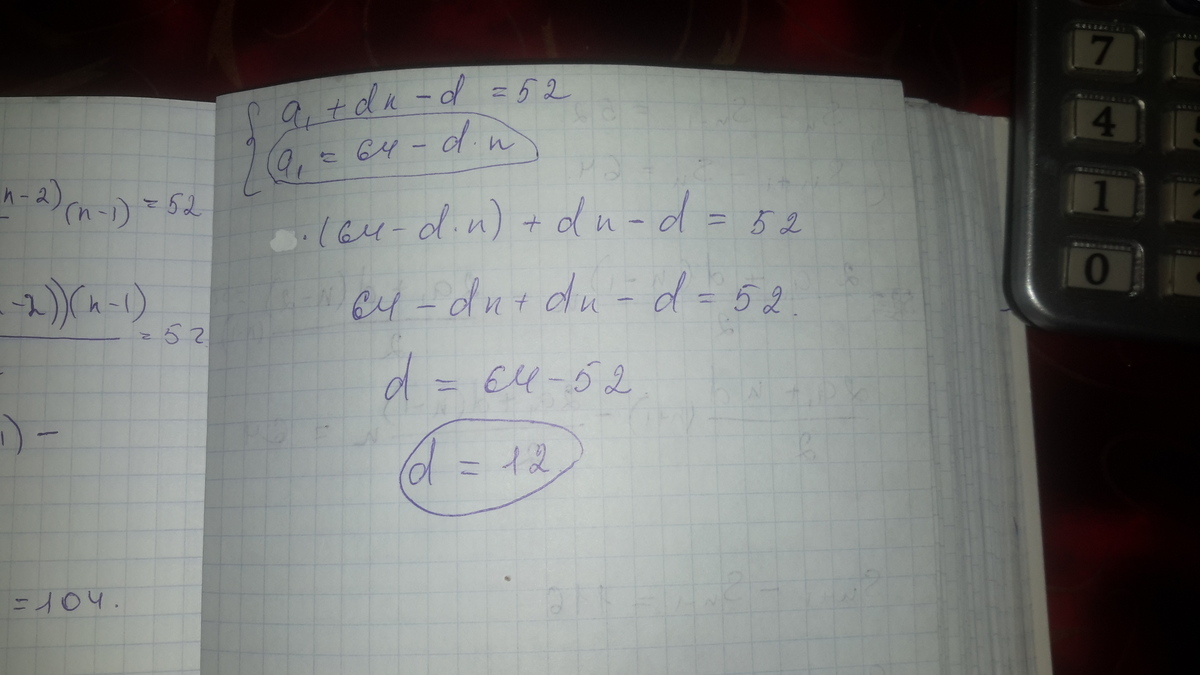 n-2)(n-1) = 52
-2))(n-1) = 52
1) -
= 104.
{ a₁ + dn - d = 52
a₁ = 64 - d·n
·(64 - d·n) + dn - d = 52
64 - dn + dn - d = 52.
d = 64 - 52
d = 12
7
4
1
0